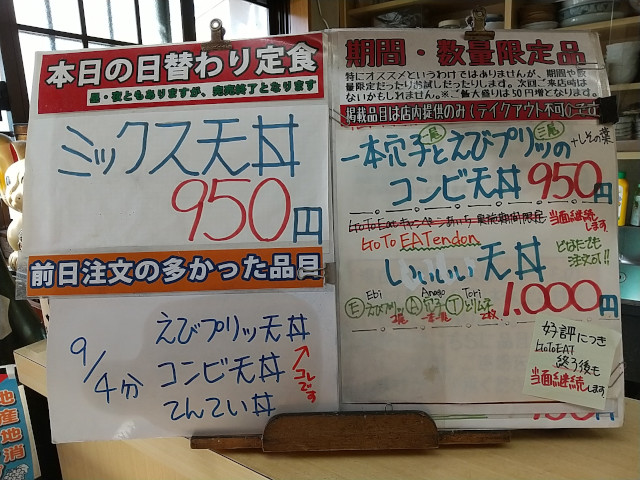 本日の日替わり定食
昼・夜ともありますが、完売終了となります
ミックス天丼
950円
前日注文の多かった品目
9/4分
えびプリッ天丼
コンビ天丼
てんてい丼
コレです
期間・数量限定品
特にオススメというわけではありませんが、期間や数
量限定だったりお試しだったりします。次回ご来店時は
ないかもしれません。※ご飯大盛りは50円増となります。
掲載品目は店内提供のみ(テイクアウト不可)です
二尾 三尾
一本穴子とえびプリッの +しその葉
コンビ天丼 950円
当面継続します
GoTo EATendon
いいいい天丼
どなたでも注文可!!
Ebi Anago Tori
Ⓔえびプリッ Ⓐ穴子 Ⓣとり天
二尾 一本 2枚
1.000円
好評につき
GoToEAT
終了後も
当面継続します
地産地消